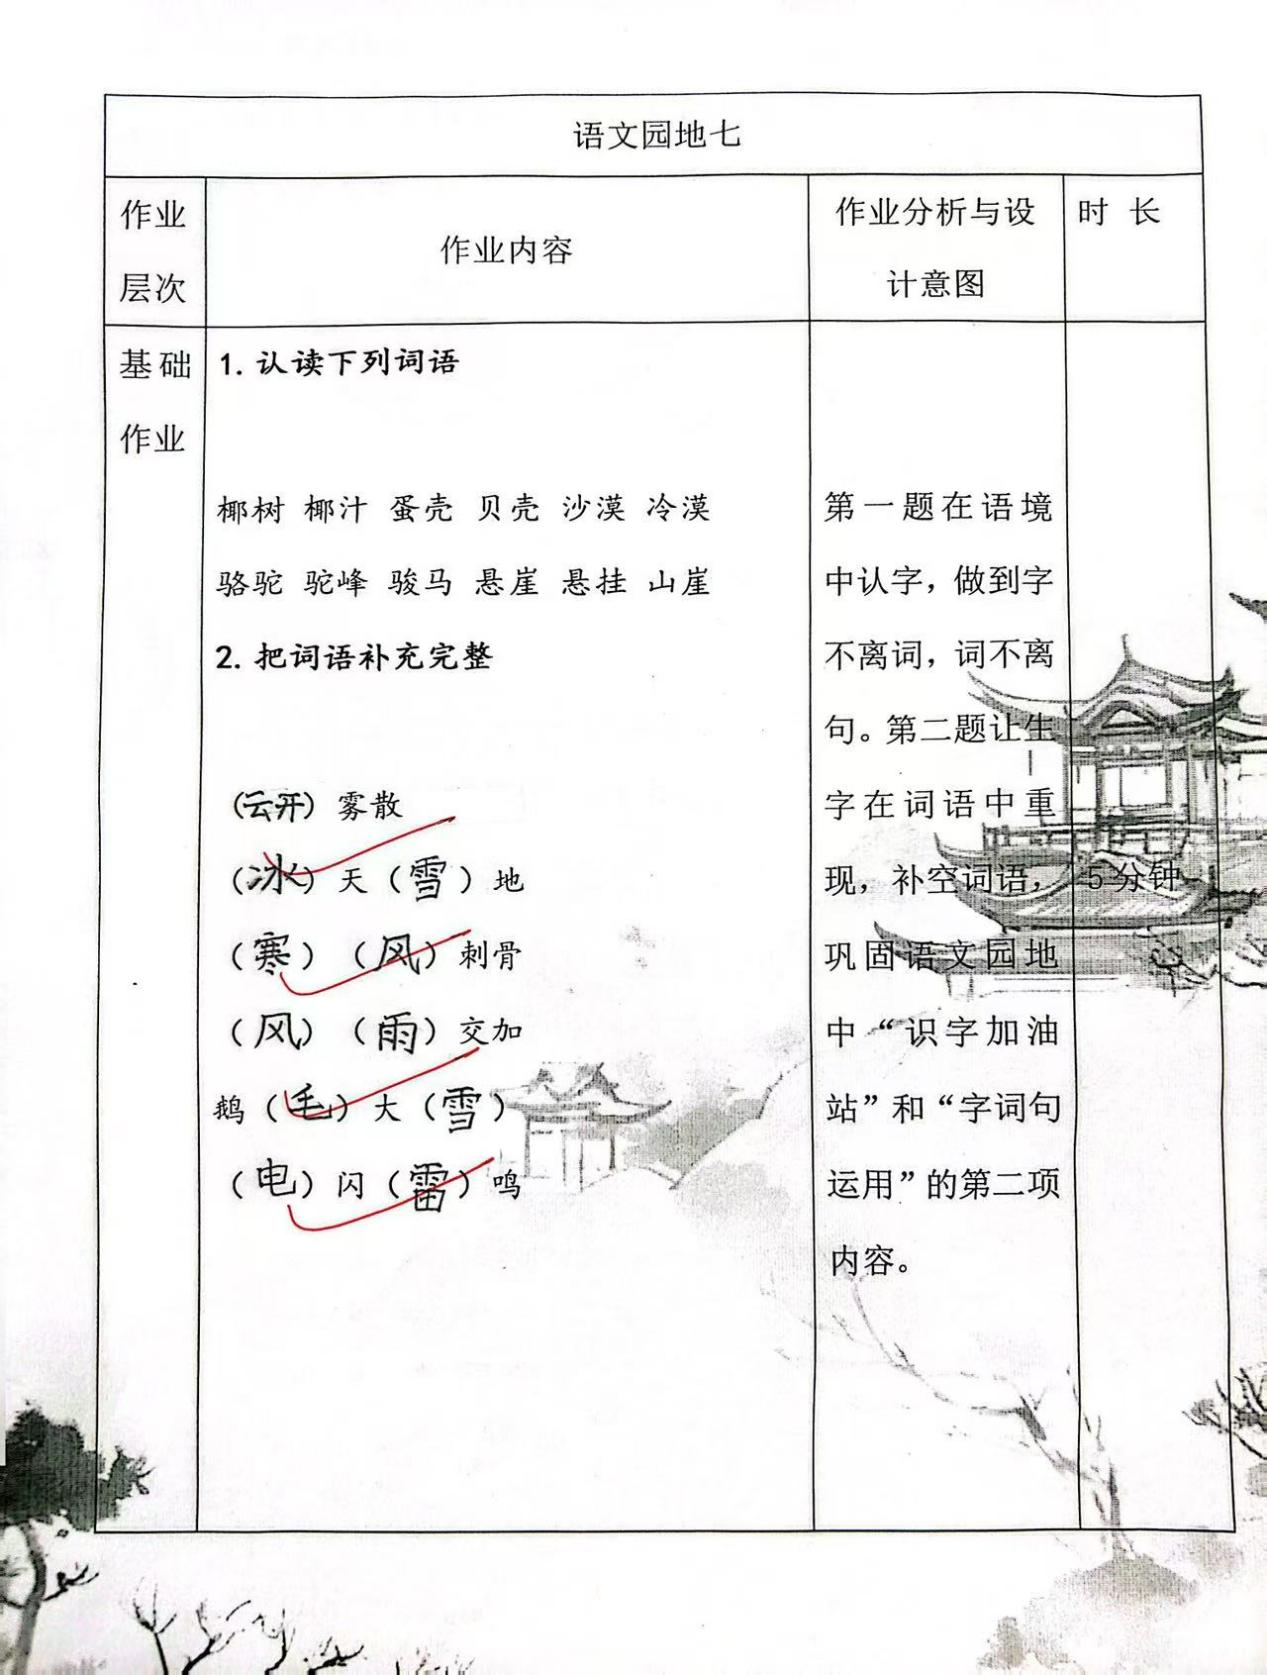 语文园地七
作业
层次
作业内容
作业分析与设
计意图
时 长
基础
作业
1. 认读下列词语
椰树 椰汁 蛋壳 贝壳 沙漠 冷漠
骆驼 驼峰 骏马 悬崖 悬挂 山崖
2. 把词语补充完整
（云开）雾散
（冰）天（雪）地
（寒）（风）刺骨
（风）（雨）交加
鹅（毛）大（雪）
（电）闪（雷）鸣
第一题在语境
中认字，做到字
不离词，词不离
句。第二题让生
字在词语中重
现，补空词语，
巩固语文园地
中“识字加油
站”和“字词句
运用”的第二项
内容。
5分钟